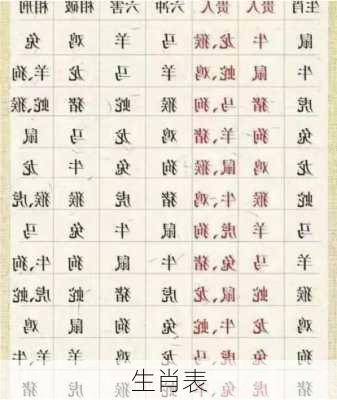 生肖 贵人 贵人 六冲 六害 相破 相刑
鼠 牛 龙、猴 马 羊 鸡 兔
牛 鼠 蛇、鸡 羊 马 龙 羊、狗
虎 猪 马、狗 猴 蛇 猪 蛇、猴
兔 狗 羊、猪 鸡 龙 马 鼠
龙 鸡 鼠、猴 狗 兔 牛 龙
蛇 猴 牛、鸡 猪 虎 猴 猴、虎
马 羊 虎、狗 鼠 牛 兔 马
羊 马 兔、猪 牛 鼠 狗 牛、狗
猴 蛇 鼠、龙 虎 猪 蛇 虎、蛇
鸡 龙 牛、蛇 兔 狗 鼠 鸡
狗 兔 虎、马 龙 鸡 羊 牛、羊
猪 虎 虎 猪
生肖表